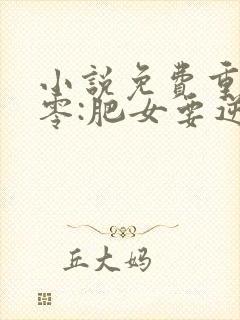 小説免費重
零:肥女要逆
丘大妈